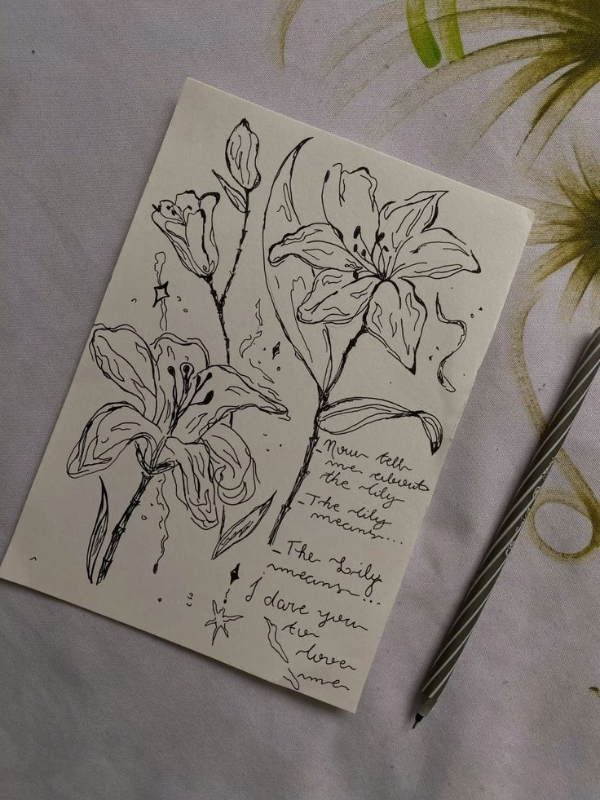 - Now tell
me about
the lily
- The lily
means...
- The Lily
means...
I dare you
to
love
me